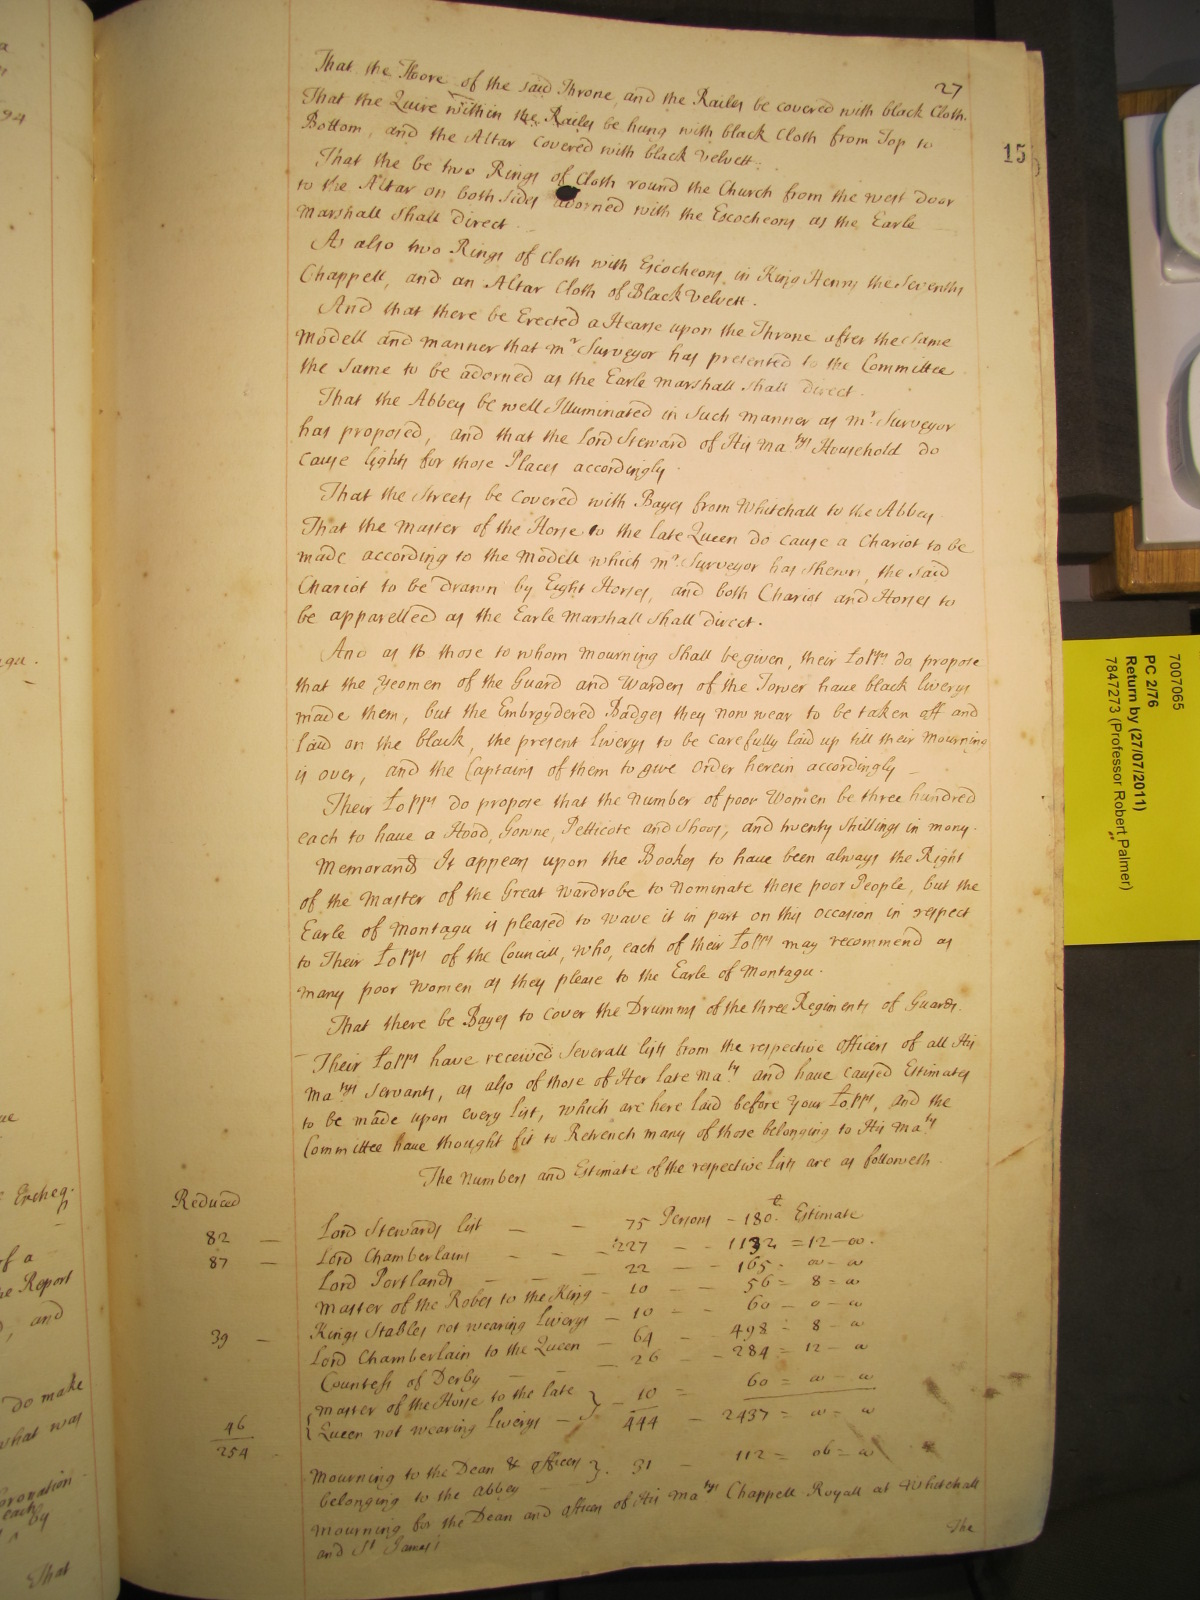 27
15
That the Floore of the said Throne, and the Railes be covered with black Cloth.
That the Quire within the Railes be hung with black Cloth from Top to
Bottom, and the Altar covered with black velvett.
That the be two Rings of Cloth round the Church from the west door
to the Altar on both sides adorned with the Escocheons as the Earle
Marshall shall direct.
As also two Rings of Cloth with Escocheons in King Henry the Sevenths
Chappell, and an Altar Cloth of Black Velvett.
And that there be Erected a Hearse upon the Throne after the same
Modell and manner that Mr Surveyor has presented to the Committee
the same to be adorned as the Earle Marshall shall Direct.
That the Abbey be well Illuminated in such manner as Mr Surveyor
has proposed, and that the Lord Steward of His Matys Household do
cause lights for those Places accordingly.
That the Streets be covered with Bayes from Whitehall to the Abbey.
That the Master of the Horse to the late Queen do cause a Chariot to be
made according to the Modell which Mr Surveyor has shewn, the said
Chariot to be drawn by Eight Horses, and both Chariot and Horses to
be apparelled as the Earle Marshall shall direct.
And as to those to whom mourning shall be given, their Lopps do propose
that the Yeomen of the Guard and Warders of the Tower have black liverys
made them, but the Embroydered Badges they now wear to be taken off and
laid on the black, the present liverys to be carefully laid up till their mourning
is over, and the Captains of them to give order herein accordingly
Their Lopps do propose that the number of poor Women be three hundred
each to have a Hood, Gowne, Petticote and Shoos, and twenty shillings in mony.
Memorand It appears upon the Bookes to have been always the Right
of the Master of the Great Wardrobe to nominate these poor People, but the
Earle of Montagu is pleased to wave it in part on this occasion in respect
to Their Lopps of the Councill, who, each of their Lopps may recommend as
many poor women as they please to the Earle of Montagu.
That there be Bayes to cover the Drumms of the three Regiments of Guards.
Their Lopps have received severall lists from the respective officers of all His
Matys Servants, as also of those of Her late Maty and have caused Estimates
to be made upon every list, which are here laid before your Lopps, and the
Committee have thought fit to Retrench many of those belonging to His Maty
The Numbers and Estimate of the respective lists are as followeth.
Reduced
82 — Lord Stewards list — — 75 Persons - 180 Estimate
87 — Lord Chamberlains — — 227 — 1132 = 12 — 00.
Lord Portlands — — 22 — 165 = 0 — 0
Master of the Robes to the King — 10 — 56 = 8 = 0
Kings Stables not wearing Liverys — 10 — 60 — 0 — 0
39 — Lord Chamberlain to the Queen — 64 — 498 = 8 — 0
Countess of Derby — 26 — 284 = 12 — 0
Master of the Horse to the late
46 Queen not wearing Liverys — 10 = 60 = 0 — 0
254 444 — 2437 = 0 — 0
Mourning to the Dean & officers
belonging to the Abbey — 31 — 112 = 06 = 0
Mourning for the Dean and officers of His Matys Chappell Royall at Whitehall
and St James's
The
7007065
PC 2/76
Return by (27/07/2011)
7847273 (Professor Robert Palmer)
94
Excheq.
of a
Report
and
do make
what was
each
by
That